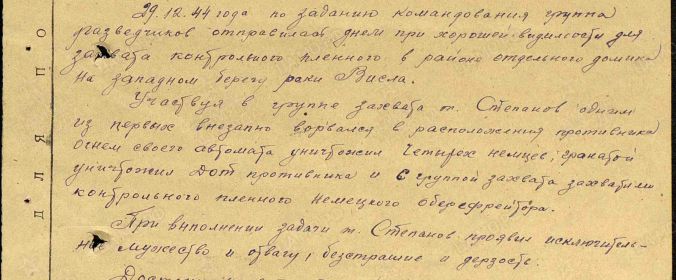 29.12.44 года по заданию командования группа
разведчиков отправилась днем при хорошей видимости для
захвата контрольного пленного в районе отдельного домика
на западном берегу реки Висла.
Участвуя в группе захвата т. Степанов одним
из первых внезапно ворвался в расположения противника
огнем своего автомата уничтожил четырех немцев, гранатой
уничтожил Дот противника и с группой захвата захватили
контрольного пленного немецкого оберефрейтора.
При выполнении задачи т. Степанов проявил исключитель-
ное мужество и отвагу, безстрашие и дерзость.
Д Л Я П О